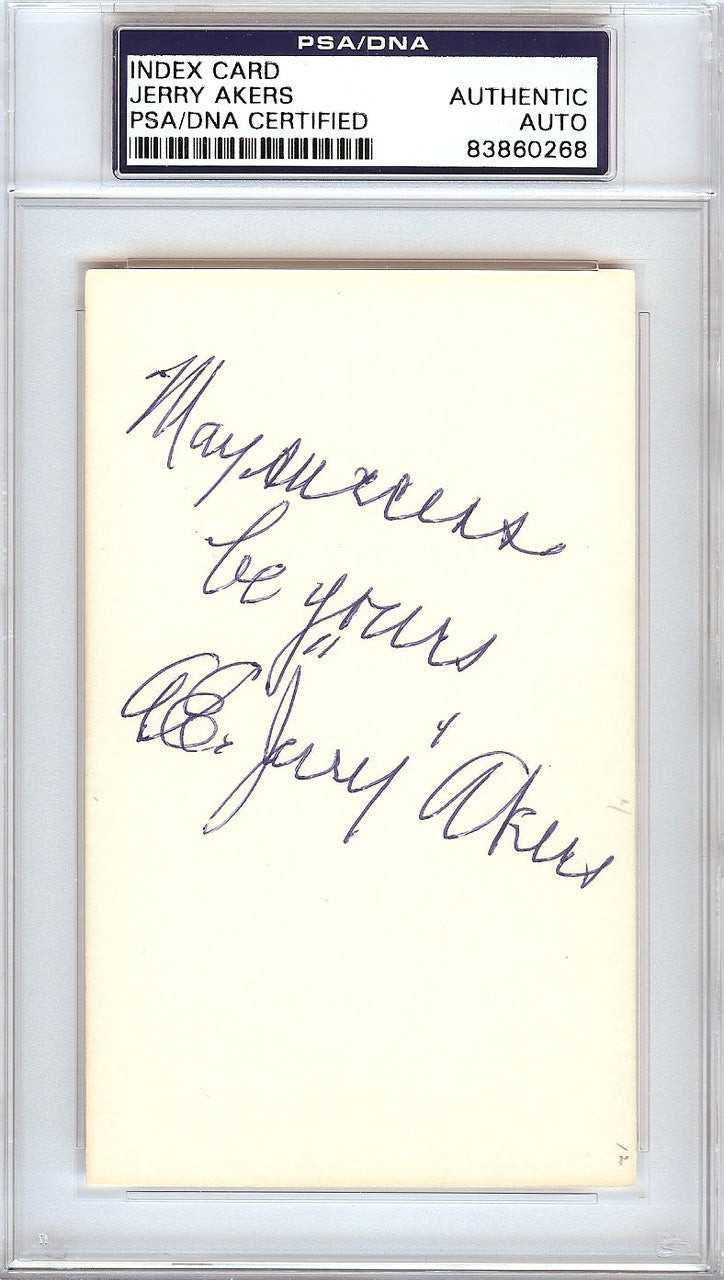 PSA/DNA
INDEX CARD
JERRY AKERS
PSA/DNA CERTIFIED
AUTHENTIC
AUTO
83860268
May success
be yours
A.E. "Jerry" Akers
12